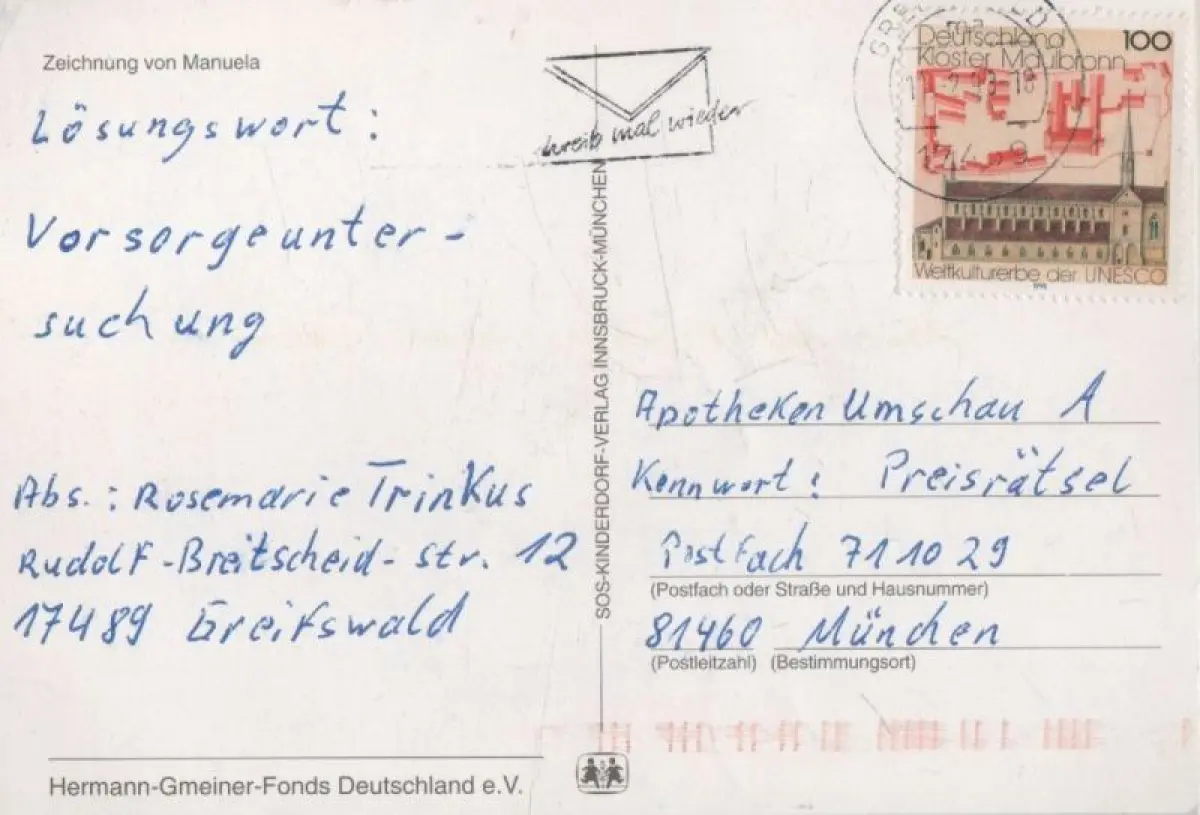 Zeichnung von Manuela
Lösungswort:
Vorsorgeunter-
suchung
Abs.: Rosemarie Trinkus
Rudolf-Breitscheid-Str. 12
17489 Greifswald
Hermann-Gmeiner-Fonds Deutschland e.V.
SOS-KINDERDORF-VERLAG INNSBRUCK-MÜNCHEN
mal wieder
Deutschland 100
Kloster Maulbronn
Weltkulturerbe der UNESCO
1998
Apotheken Umschau A
Kennwort: Preisrätsel
Postfach 711029
(Postfach oder Straße und Hausnummer)
81460 München
(Postleitzahl) (Bestimmungsort)